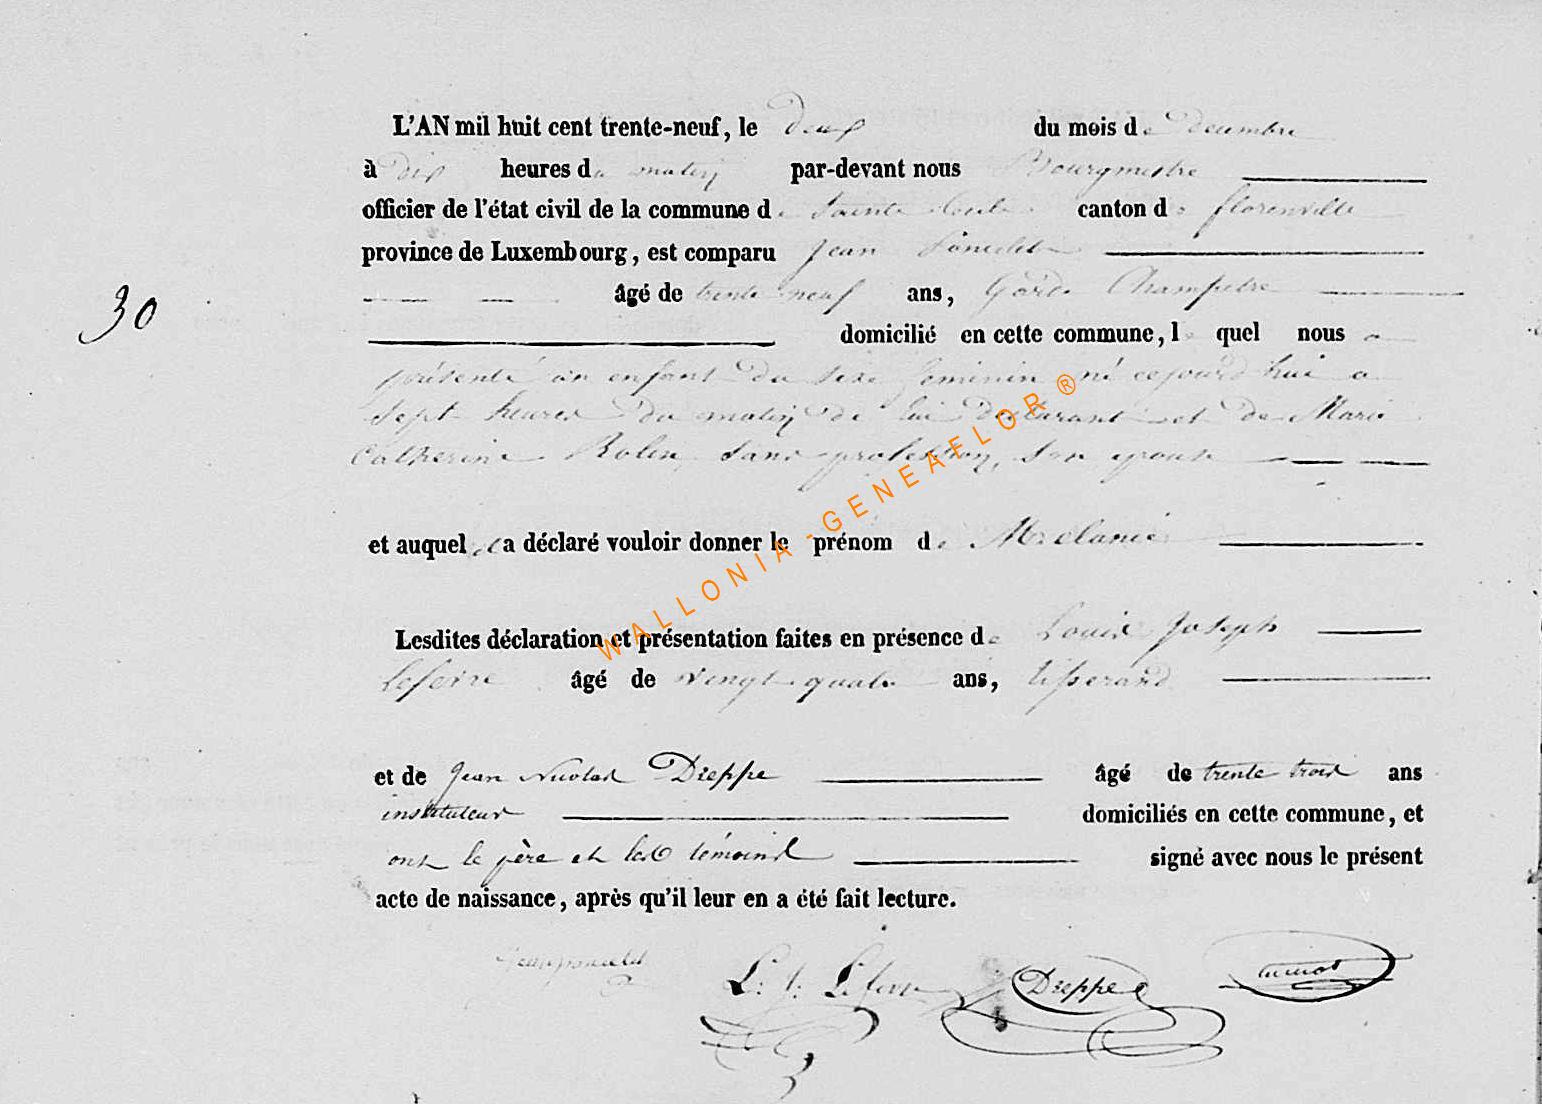 L'AN mil huit cent trente-neuf, le deux du mois de decembre
à dix heures du matin par-devant nous Bourgmestre
officier de l'état civil de la commune de Sainte Cecile canton de florenville
province de Luxembourg, est comparu Jean
30
âgé de trente neuf ans, Garde Champetre
domicilié en cette commune, lequel nous a
présenté un enfant du sexe feminin né cejourd'hui a
sept heures du matin de lui declarant et de Marie
Catherine Rolin, sans profession, son epouse
et auquel il a déclaré vouloir donner le prénom de Melanie
Lesdites déclaration et présentation faites en présence de Louis Joseph
Lefevre âgé de vingt quatre ans, tisserand
et de Jean Nicolas Dreppe âgé de trente trois ans
instituteur domiciliés en cette commune, et
ont le père et les témoins signé avec nous le présent
acte de naissance, après qu'il leur en a été fait lecture.
L. J. Lefevre Dreppe
WALLONIA-GENEAFLOR®